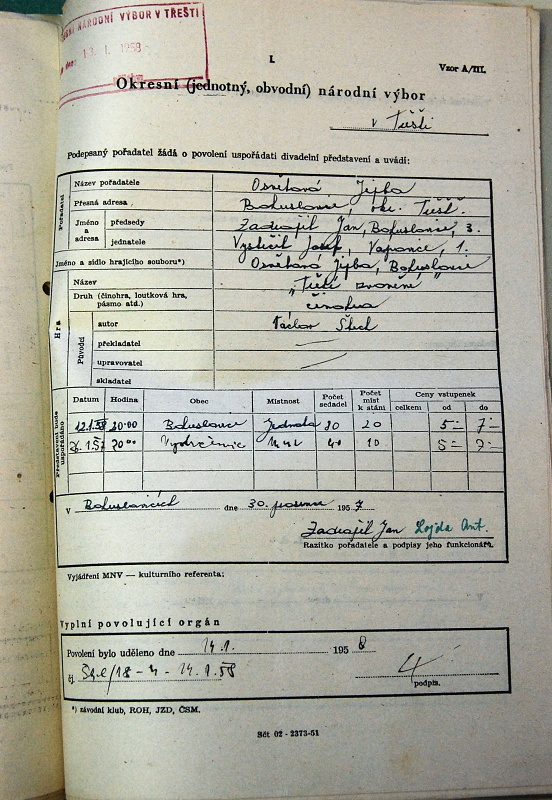 NÁRODNÍ VÝBOR V TŘEŠTI
13. I. 1958
I.
Vzor A/III.
Okresní (jednotný, obvodní) národní výbor
v Třešti
Podepsaný pořadatel žádá o povolení uspořádati divadelní představení a uvádí:
Pořadatel
Název pořadatele
Osvětová
Přesná adresa
Bohuslavice, okr. Třešť.
Jméno a adresa
předsedy
Zadražil Jan, Bohuslavice, 3.
jednatele
Josef, Vápovice, 1.
Jméno a sídlo hrajícího souboru*)
Osvětová Bohuslavice
Hra
Název
„Tiché zvonění"
Druh (činohra, loutková hra, pásmo atd.)
činohra
Původci
autor
Václav Štech
překladatel
upravovatel
skladatel
Představení bude uspořádáno
Datum Hodina Obec Místnost Počet sedadel Počet míst k stání Ceny vstupenek
celkem od do
12.1.58 20·00 Bohuslavice Jednota 80 20 5·- 7·-
26.1.57 20°° MNV 40 10 5·- 7·-
V Bohuslavicích dne 30. prosince 1957
Zadražil Jan Lojda Ant.
Razítko pořadatele a podpisy jeho funkcionářů.
Vyjádření MNV — kulturního referenta:
Vyplní povolující orgán
Povolení bylo uděleno dne 14.1. 1958
čj. 14.1.58
podpis.
*) závodní klub, ROH, JZD, ČSM.
Sčt 02 - 2373-51